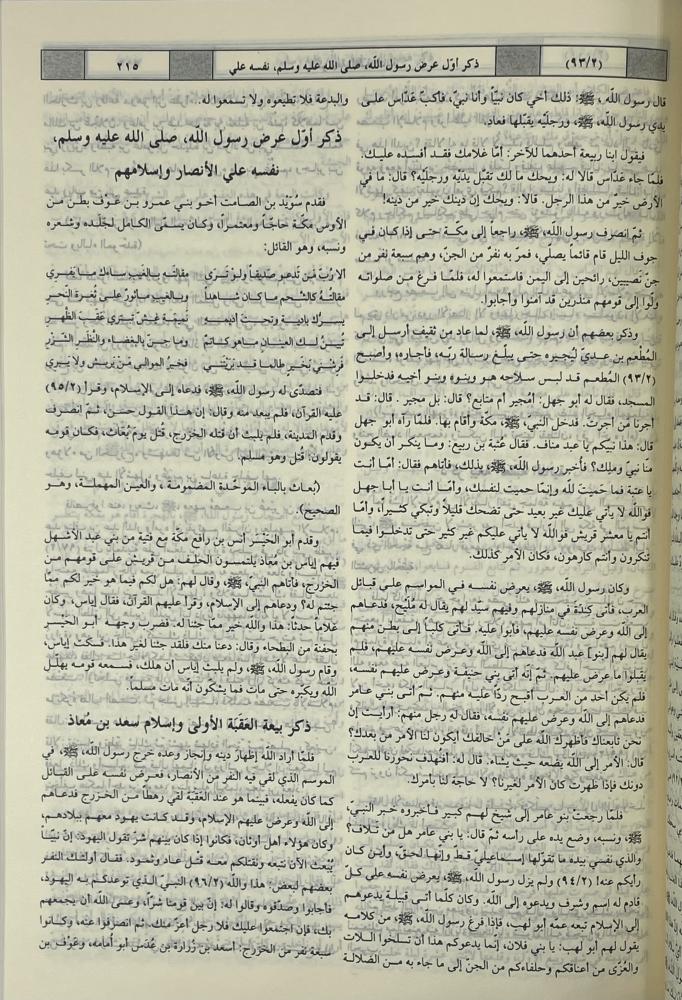 (٩٣/٢)
ذكر أوّل عرض رسول الله، صلى الله عليه وسلم، نفسه علي
٢١٥
قال رسول الله، ﷺ: ذلك أخي كان نبيّاً وأنا نبيّ، فأكبّ عدّاس على
يدي رسول الله، ﷺ، ورجليّه يقبّلها فعاد.
فيقول ابنا ربيعة أحدهما للآخر: أمّا غلامك فقد أفسده عليك.
فلمّا جاء عدّاس قالا له: ويحك ما لك تقبّل يديّه ورجليّه؟ قال: ما في
الأرض خير من هذا الرجل. قالا: ويحك إن دينك خير من دينه!
ثمّ انصرف رسول الله، ﷺ، راجعاً إلى مكّة حتى إذا كان في
جوف الليل قام قائماً يصلّي، فمر به نفرٌ من الجنّ، وهم سبعة نفر من
جنّ نَصيبين، رائحين إلى اليمن فاستمعوا له، فلمّا فرغ من صلواته
ولّوا إلى قومهم منذرين قد آمنوا وأجابوا.
وذكر بعضهم أن رسول الله، ﷺ، لما عاد من ثقيف أرسل إلى
المُطْعِم بن عديّ ليُجيره حتى يبلّغ رسالة ربّه، فأجاره، وأصبح
(٩٣/٢) المُطعم قد لبس سلاحه هو وبنوه وبنو أخيه فدخلوا
المسجد، فقال له أبو جهل: أمُجير أم متابع؟ قال: بل مجير . قال: قد
أجرنا مَن أجرتَ. فدخل النبي، ﷺ، مكّة وأقام بها. فلمّا رآه أبو جهل
قال: هذا نبيكم يا عبد مناف. فقال عُتبة بن ربيع: وما ينكر أن يكون
منّا نبيّ وملِك؟ فأُخبر رسول الله، ﷺ، بذلك، فأتاهم فقال: أمّا أنت
يا عتبة فما حَميتَ لله وإنّما حميت لنفسك، وأمّا أنت يا أبا جهل
فوالله لا يأتي عليك غير بعيد حتى تضحك قليلاً وتبكي كثيراً، وأمّا
أنتم يا معشر قريش فوالله لا يأتي عليكم غير كثير حتى تدخلوا فيما
تنكرون وأنتم كارهون، فكان الأمر كذلك.
وكان رسول الله، ﷺ، يعرض نفسه في المواسم على قبائل
العرب، فأتى كِندَة في منازلهم وفيهم سيّد لهم يقال له مُلَيْح، فدعاهم
إلى الله وعرض نفسه عليهم، فأبوا عليه. فأتى كلباً إلى بطن منهم
يقال لهم [بنو] عبد الله فدعاهم إلى الله وعرض نفسه عليهم، فلم
يقبلوا ما عرض عليهم. ثمّ إنّه أتى بني حنيفة وعرض عليهم نفسه،
فلم يكن أحد من العرب أقبح ردّاً عليه منهم. ثمّ أتى بني عامر
فدعاهم إلى الله وعرض عليهم نفسه، فقال له رجل منهم: أرأيت إن
نحن تابعناك فأظهرك الله على مَن خالفك أيكون لنا الأمر من بعدك؟
قال: الأمر إلى الله يضعه حيث يشاء. قال له: أفتُهدف نحورنا للعرب
دونك فإذا ظهرت كان الأمر لغيرنا؟ لا حاجة لنا بأمرك.
فلمّا رجعتْ بنو عامر إلى شيخ لهم كبير فأخبروه خبر النبيّ،
ﷺ، ونسبه، وضع يده على رأسه ثمّ قال: يا بني عامر هل من تَلاف؟
والذي نفسي بيده ما تقوّلها إسماعيليّ قطّ وإنّها لحقّ، وأين كان
رأيكم عنه! (٩٤/٢) ولم يزل رسول الله، ﷺ، يعرض نفسه على كلّ
قادم له إسم وشرف ويدعوه إلى الله. وكان كلّما أتى قبيلة يدعوهم
إلى الإسلام تبعه عمّه أبو لهب، فإذا فرغ رسول الله، ﷺ، من كلامه
يقول لهم أبو لهب: يا بني فلان، إنّما يدعوكم هذا أن تسلخوا اللات
والعُزّى من أعناقكم وحلفاءكم من الجنّ إلى ما جاء به من الضلالة
والبدعة فلا تطيعوه ولا تسمعوا له.
ذكر أوّل عرض رسول الله، صلى الله عليه وسلم،
نفسه علي الأنصار وإسلامهم
فقدم سُوَيْد بن الصامت أخو بني عمرو بن عَوْف بطن من
الأوس مكّة حاجّاً ومعتمراً، وكان يسمّى الكامل لجلْده وشعره
ونسبه، وهو القائل:
ألا رُبّ مَن تدعو صديقاً ولو تَرى مقالتَه بالغيب ساءك ما يَفري
مقالتُه كالشّحم ما كان شاهداً وبالغيب مأثورٌ على ثُغرة النّحرِ
يسرّك باديه وتحت أديمه نميمةُ غِشّ تبتري عَقَبَ الظّهرِ
تُبينُ لك العينان ما هو كاتمٌ وما جنّ بالبغضاء والنّظَر الشّزْرِ
فرشْني بخير طالما قد بَرَيْتَني فخيرُ الموالي مَنْ يَريش ولا يَبري
فتصدّى له رسول الله، ﷺ، فدعاه إلى الإسلام، وقرأ (٩٥/٢)
عليه القرآن، فلم يبعد منه وقال: إن هذا القول حسن، ثمّ انصرف
وقدم المدينة، فلم يلبث أن قتله الخزرج، قُتل يومَ بُعاث، فكان قومه
يقولون: قُتل وهو مسلم.
(بُعاث بالباء الموحّدة المضمومة ، والعين المهملة، وهو
الصحيح).
وقدم أبو الحَيْسَر أنس بن رافع مكّة مع فتية من بني عبد الأشهل
فيهم إياس بن مُعاذ يلتمسون الحلف من قريش على قومهم من
الخزرج، فأتاهم النبي، ﷺ، وقال لهم: هل لكم فيما هو خير لكم ممّا
جئتم له؟ ودعاهم إلى الإسلام، وقرأ عليهم القرآن، فقال إياس، وكان
غلاماً حدثاً: هذا والله خير ممّا جئنا له. فضرب وجهه أبو الحَيْسر
بحفنة من البطحاء وقال: دعنا منك فلقد جئنا لغير هذا. فسكت إياس،
وقام رسول الله، ﷺ، ولم يلبث إياس أن هلك، فسمعه قومه يهلّل
الله ويكبّره حتى مات فما يشكّون أنّه مات مسلماً.
ذكر بيعة العَقبَة الأولى وإسلام سعد بن مُعاذ
فلمّا أراد الله إظهار دينه وإنجاز وعده خرج رسول الله، ﷺ، في
الموسم الذي لقي فيه النفر من الأنصار، فعرض نفسه على القبائل
كما كان يفعله، فبينما هو عند العَقَبة لقي رهطاً من الخزرج فدعاهم
إلى الله وعرض عليهم الإسلام، وقد كانت يهود معهم ببلادهم،
وكان هؤلاء أهل أوثان، فكانوا إذا كان بينهم شرّ تقول اليهود: إنّ نبيّاً
يُبْعث الآن نتبعه ونقتلكم معه قتْل عاد وثمود. فقال أولئك النفر
بعضهم لبعض: هذا والله (٩٦/٢) النبيّ الذي توعدكم به اليهود،
فأجابوا وصدّقوه وقالوا له: إنّ بين قومنا شرّاً، وعسى الله أن يجمعهم
بك، فإن اجتمعوا عليك فلا رجل أعزّ منك. ثم انصرفوا عنه، وكانوا
سبعة نفر من الخزرج: أسعد بن زُرارة بن عُدَس أبو أمامه، وعَوْف بن